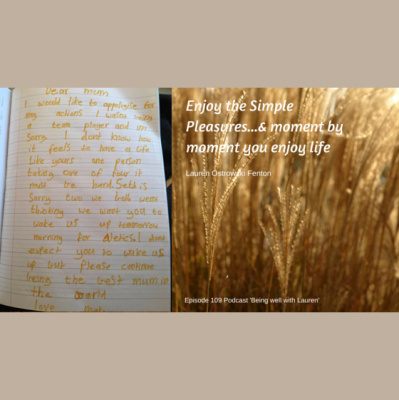 Dear mum
I would like to appligise for
my actions I wasnt being
a team player and am
Sorry I dont know how
it feels to have a life
like yours one person
taking care of four it
must be hard. Seth is
sorry two we both wernt
we want you to
wake us up tomorrow
morning for I dont
expect you to wake us
up but please continue
being the best mum in
the world
love
Enjoy the Simple
Pleasures...& moment by
moment you enjoy life
Lauren Ostrowski Fenton
Episode 109 Podcast 'Being well with Lauren'